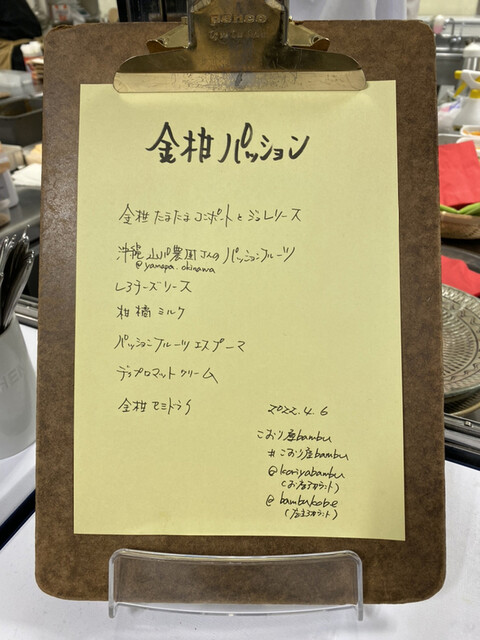 金柑パッション
金柑たまたまコンポートとジュレソース
沖縄山パ農園さんのパッションフルーツ
@yamapa.okinawa
レアチーズソース
柑橘ミルク
パッションフルーツエスプーマ
ディプロマットクリーム
金柑セミドライ
2022.4.6
こおり屋bambu
#こおり屋bambu
@koriyabambu
(お店アカウント)
@bambukobe
(店主アカウント)